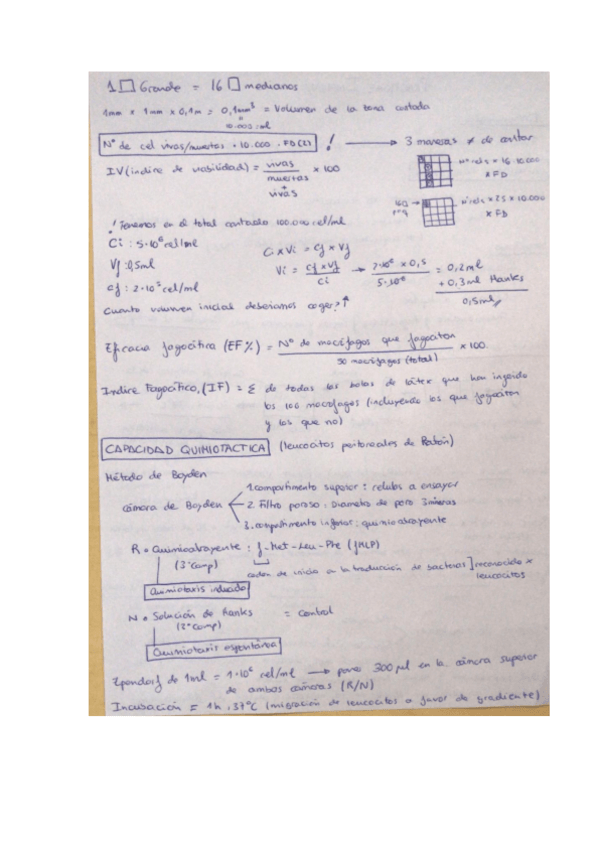 1 □ Grande = 16 □ medianos
1mm x 1mm x 0,1m = 0,1mm³ = Volumen de la zona contada
Nº de cel vivas/muertas · 10.000 · FD(2) ! → 3 maneras ≠ de contar
nº cels x 16 · 10.000 x FD
IV (indice de viabilidad) = vivas / muertas + vivas x 100
nº cels x 25 x 10.000 x FD
! Tenemos en el total contado 100.000 cel/ml
Ci : 5·10⁶ cel/ml
Ci x Vi = Cf x Vf
Vf : 0,5ml
Vi = Cf x Vf / Ci → 2·10⁶ x 0,5 / 5·10⁶ = 0,2 ml
+ 0,3 ml Hanks
cf : 2·10⁵ cel/ml
0,5ml
Cuanto volumen inicial deberiamos coger? ↑
Eficacia fagocítica (EF%) = Nº de macrófagos que fagocitan / macrófagos (total) x 100
Indice Fagocítico, (IF) = Σ de todas las bolas de látex que han ingerido
los 100 macrófagos (incluyendo los que fagocitan
y los que no)
CAPACIDAD QUIMIOTACTICA (leucocitos peritoneales de Ratón)
Método de Boyden
cámara de Boyden
1. compartimento superior : celulas a ensayar
2. Filtro poroso : Diametro de poro 3 micras
3. compartimento inferior : quimioatrayente
R = Quimioatrayente : f-Met-Leu-Phe (fMLP)
(3ºcomp)
codon de inicio a la traducción de bacterias ] reconocido x leucocitos
Quimiotaxis inducida
N = Solución de Hanks = Control
(3ºcomp)
Quimiotaxis espontánea
Ependorf de 1ml = 1·10⁶ cel/ml → poner 300 µl en la cámara superior
de ambas cámaras (R/N)
Incubación = 1h , 37ºC (migración de leucocitos a favor de gradiente)